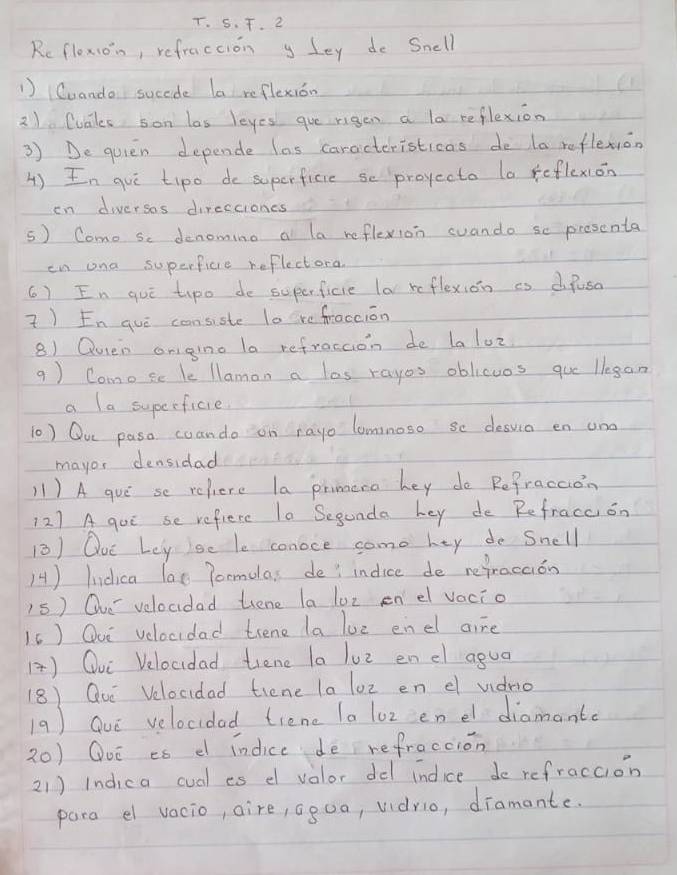 T. S. F. 2
Reflexión, refracción y Ley de Snell
1) Cuando sucede la reflexión
2) Cuáles son las leyes que rigen a la reflexión
3) De quién depende las características de la reflexión
4) En qué tipo de superficie se proyecta la reflexión
en diversas direcciones
5) Como se denomina a la reflexión cuando se presenta
en una superficie reflectora.
6) En qué tipo de superficie la reflexión es difusa
7) En qué consiste la refracción
8) Quien origina la refracción de la luz
9) Como se le llaman a los rayos oblicuos que llegan
a la superficie.
10) Que pasa cuando un rayo luminoso se desvia en una
mayor densidad
11) A qué se refiere la primera Ley de Refracción
12) A qué se refiere la Segunda Ley de Refracción
13) Qué Ley se le conoce como Ley de Snell
14) Indica las formulas de: indice de refracción
15) Qué velocidad tiene la luz en el vacío
16) Qué velocidad tiene la luz en el aire
17) Qué Velocidad tiene la luz en el agua
18) Qué Velocidad tiene la luz en el vidrio
19) Qué velocidad tiene la luz en el diamante
20) Qué es el índice de refracción
21) Indica cual es el valor del indice de refracción
para el vacio, aire, agua, vidrio, diamante.